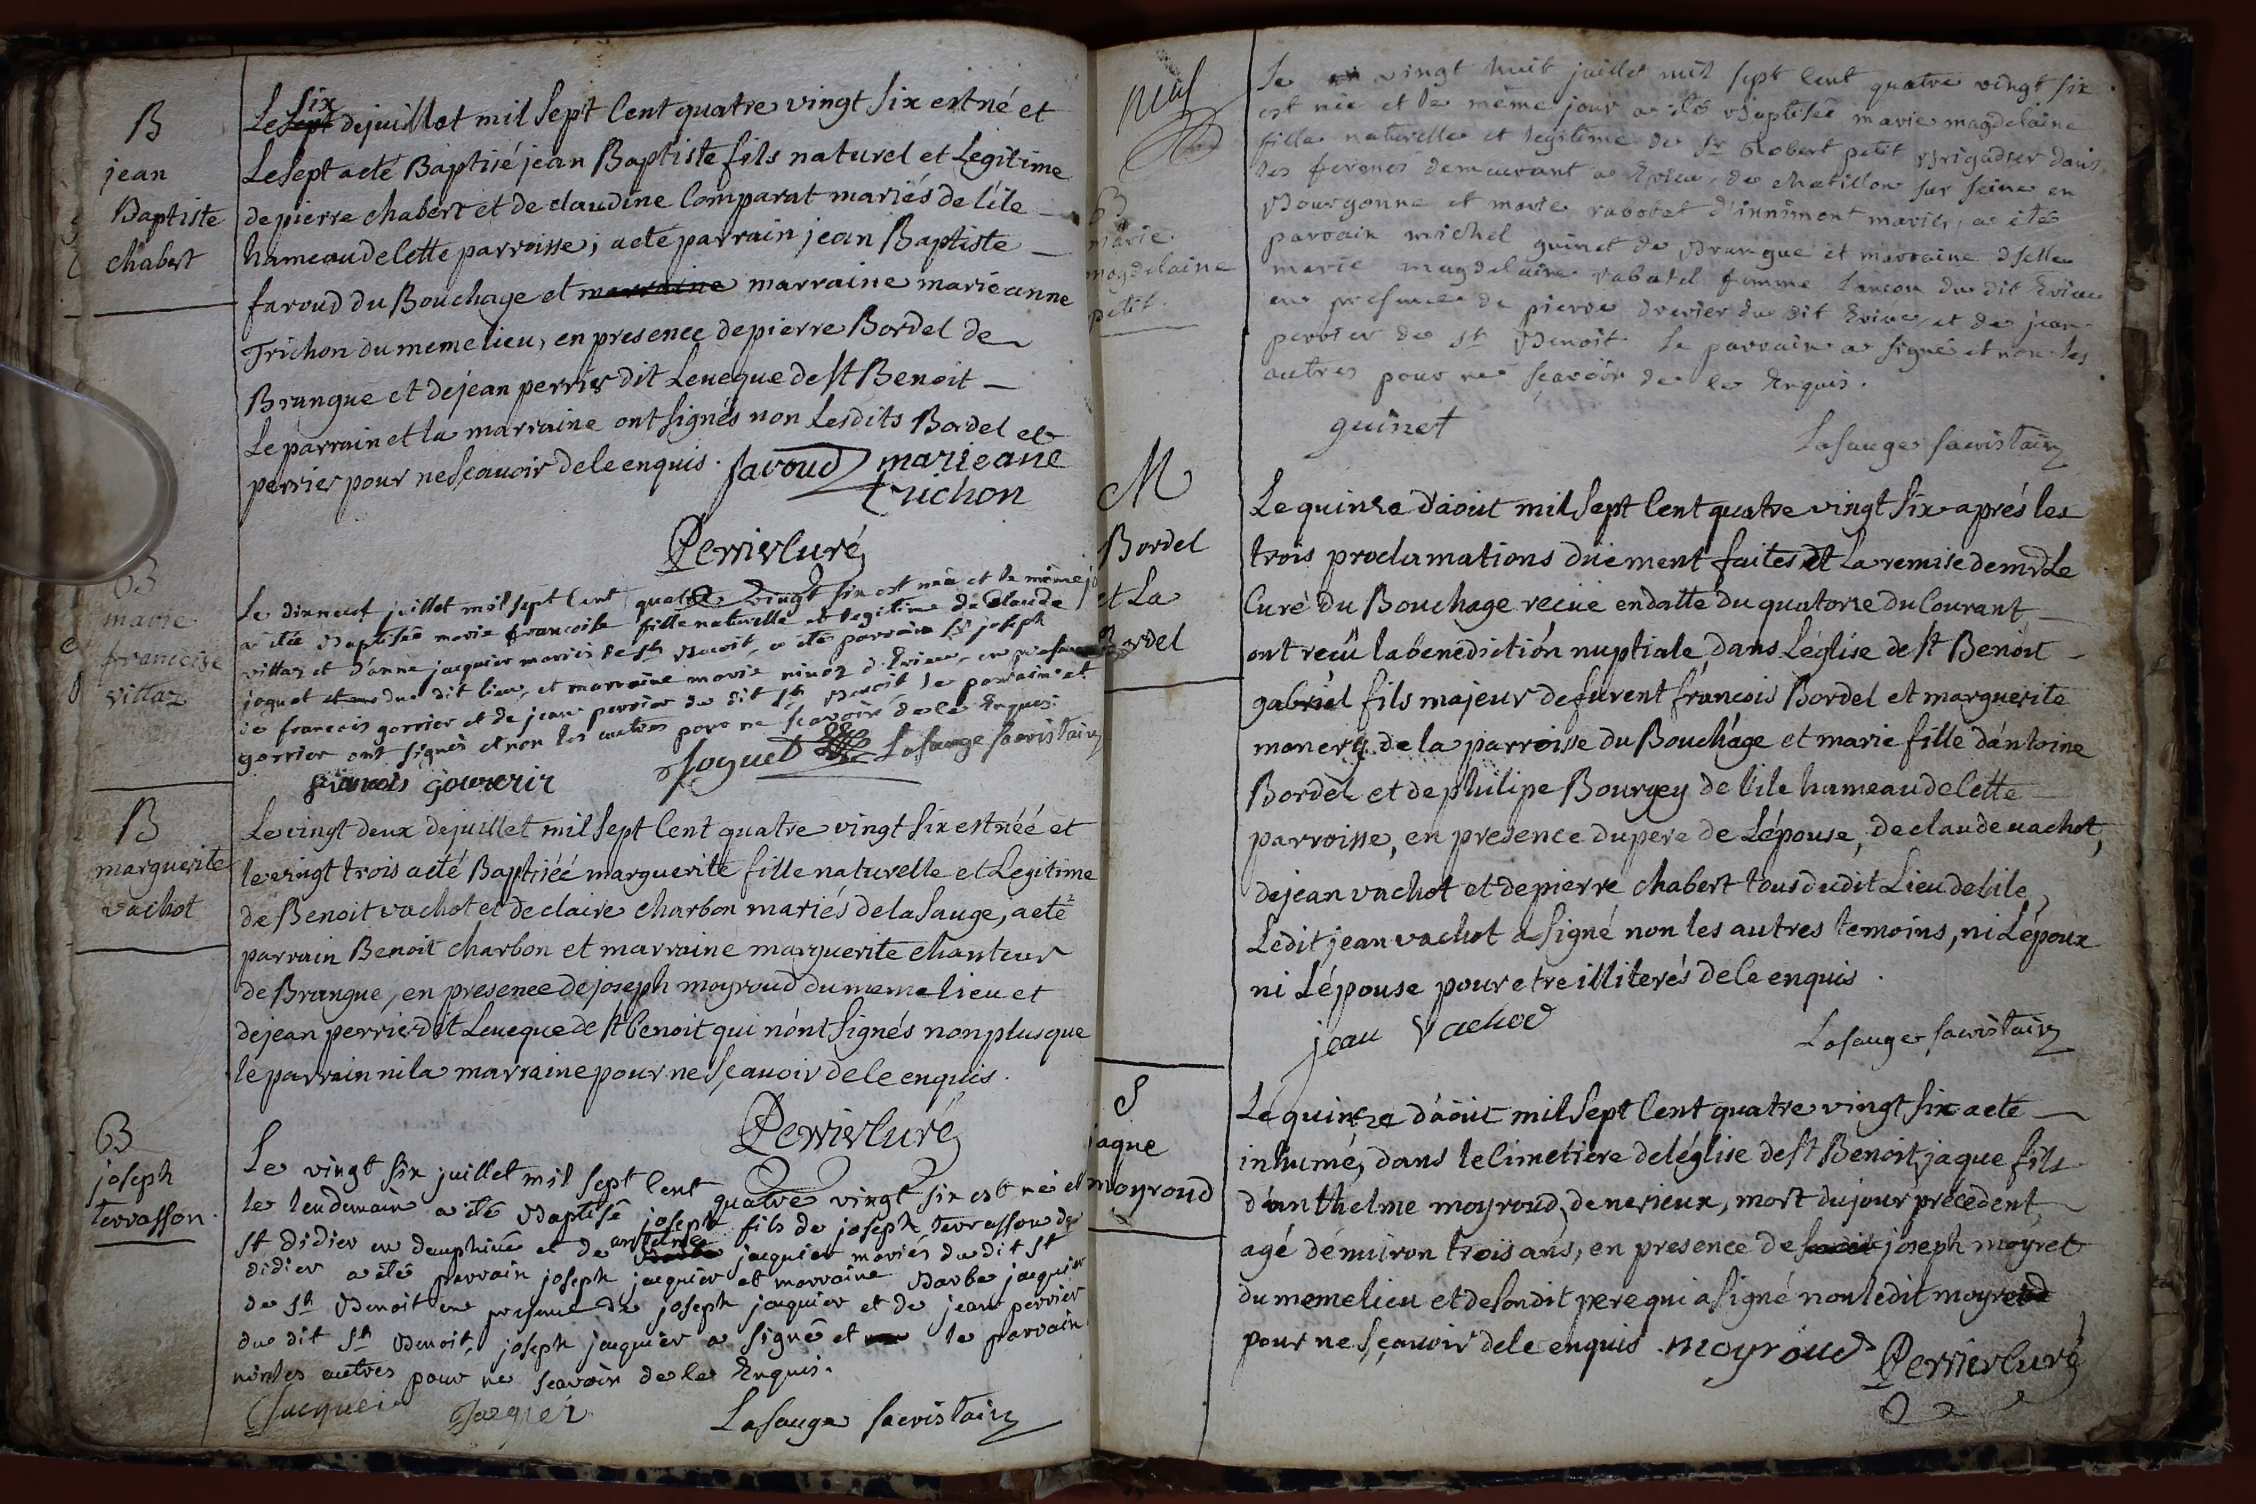 B
jean
Baptiste
chabert
six
Le sept de juillet mil sept Cent quatre vingt six est né et
Le sept a eté Baptisé jean Baptiste fils naturel et Legitime
de pierre chabert et de claudine Comparat mariés de l'ile
hameau de Cette parroisse; a eté parrain jean Baptiste
favoud du Bouchage et marraine marraine marie anne
Trichon du meme lieu, en presence de pierre Bordel de
Brangue et de jean perrier dit Leveque de st Benoit
Le parrain et la marraine ont signés non Lesdits Bordel et
perrier pour ne sçavoir de le enquis. favoud marie ane
trichon
Perrier Curé
B
marie
francoise
villaz
Le dixneuf juillet mil sept Cent quatre vingt six est née et le même
a été Baptisée marie francoise fille naturelle et legitime de Claude
villaz et d'anne jacquier mariés de st Benoit, a été parrain sr joseph
joquet du dit lieu, et marraine marie ninoz d'Evieu, en presence
de francois gorrier et de jean perrier du dit st Benoit le parrain et
gorrier ont signés et non les autres pour ne sçavoir de le Enquis.
francois gourrir joquet Lasauge sacristain
B
marguerite
vachot
Le vingt deux de juillet mil sept Cent quatre vingt six est néé et
le vingt trois a été Baptiséé marguerite fille naturelle et Legitime
de Benoit vachot et de claire charbon mariés de la sauge, a eté
parrain Benoit charbon et marraine marguerite chanteur
de Brangue, en presence de joseph moyroud du meme lieu et
de jean perrier dit Leveque de st benoit qui n'ónt signés non plus que
le parrain ni la marraine pour ne sçavoir de le enquis.
Perrier Curé
B
joseph
terrasson.
Le vingt six juillet mil sept Cent quatre vingt six est né et
le lendemain a été Baptisé joseph fils de joseph terrasson de
st didier en dauphiné et de antoinne jacquier mariés du dit st
didier a été parrain joseph jacquier et marraine Barbe jacquier
de st Benoit en presence de joseph jacquier et de jean perrier
du dit st Benoit, joseph jacquier a signé et le parrain
non les autres pour ne scavoir de le Enquis.
Jacquier Jacquier Lasauge sacristain
B
marie
magdelaine
petit.
Le vingt huit juillet mil sept Cent quatre vingt six
est née et le même jour a été Baptisée marie magdelaine
fille naturelle et legitime de sr Robert petit Brigadier dans
les fermes demeurant a Evieu, de chatillon sur seine en
Bourgonne et marie rabatel d'innimont mariés, a été
parrain michel guinet de Brangue et marraine dselle
marie magdelaine rabatel femme Lancon du dit Evieu
en presence de pierre drevier du dit Evieu, et de jean
perrier de st Benoit le parrain a signé et non les
autres pour ne sçavoir de le Enquis.
guinet
Lasauge sacristain
M
Bordel
et La
Bordel
Le quinze d'aout mil sept Cent quatre vingt six aprés les
trois proclamations duement faites et La remise de mr Le
Curé du Bouchage recue en datte du quatorze du Courant
ont recu la benediction nuptiale, dans L'église de st Benoit
gabriel fils majeur de furent francois Bordel et marguerite
monery de la parroisse du Bouchage et marie fille d'antoine
Bordel et de philipe Bourgey de l'ile hameau de Cette
parroisse, en presence du pere de L'épouse, de claude vachot,
de jean vachot et de pierre chabert tous du dit Lieu de L'ile,
Ledit jean vachot a signé non les autres temoins, ni L'époux
ni L'épouse pour etre illiterés de le enquis.
jean vachot
Lasauge sacristain
S
jaque
moyroud
Le quinze d'aout mil sept Cent quatre vingt six a eté
inhumé, dans le Cimetiere de l'église de st Benoit, jaque fils
d'anthelme moyroud, de nerieux, mort du jour précedent,
agé d'environ trois ans, en presence de joseph moyret
du meme lieu et de son dit pere qui a signé non ledit moyret
pour ne sçavoir de le enquis. moyroud Perrier Curé